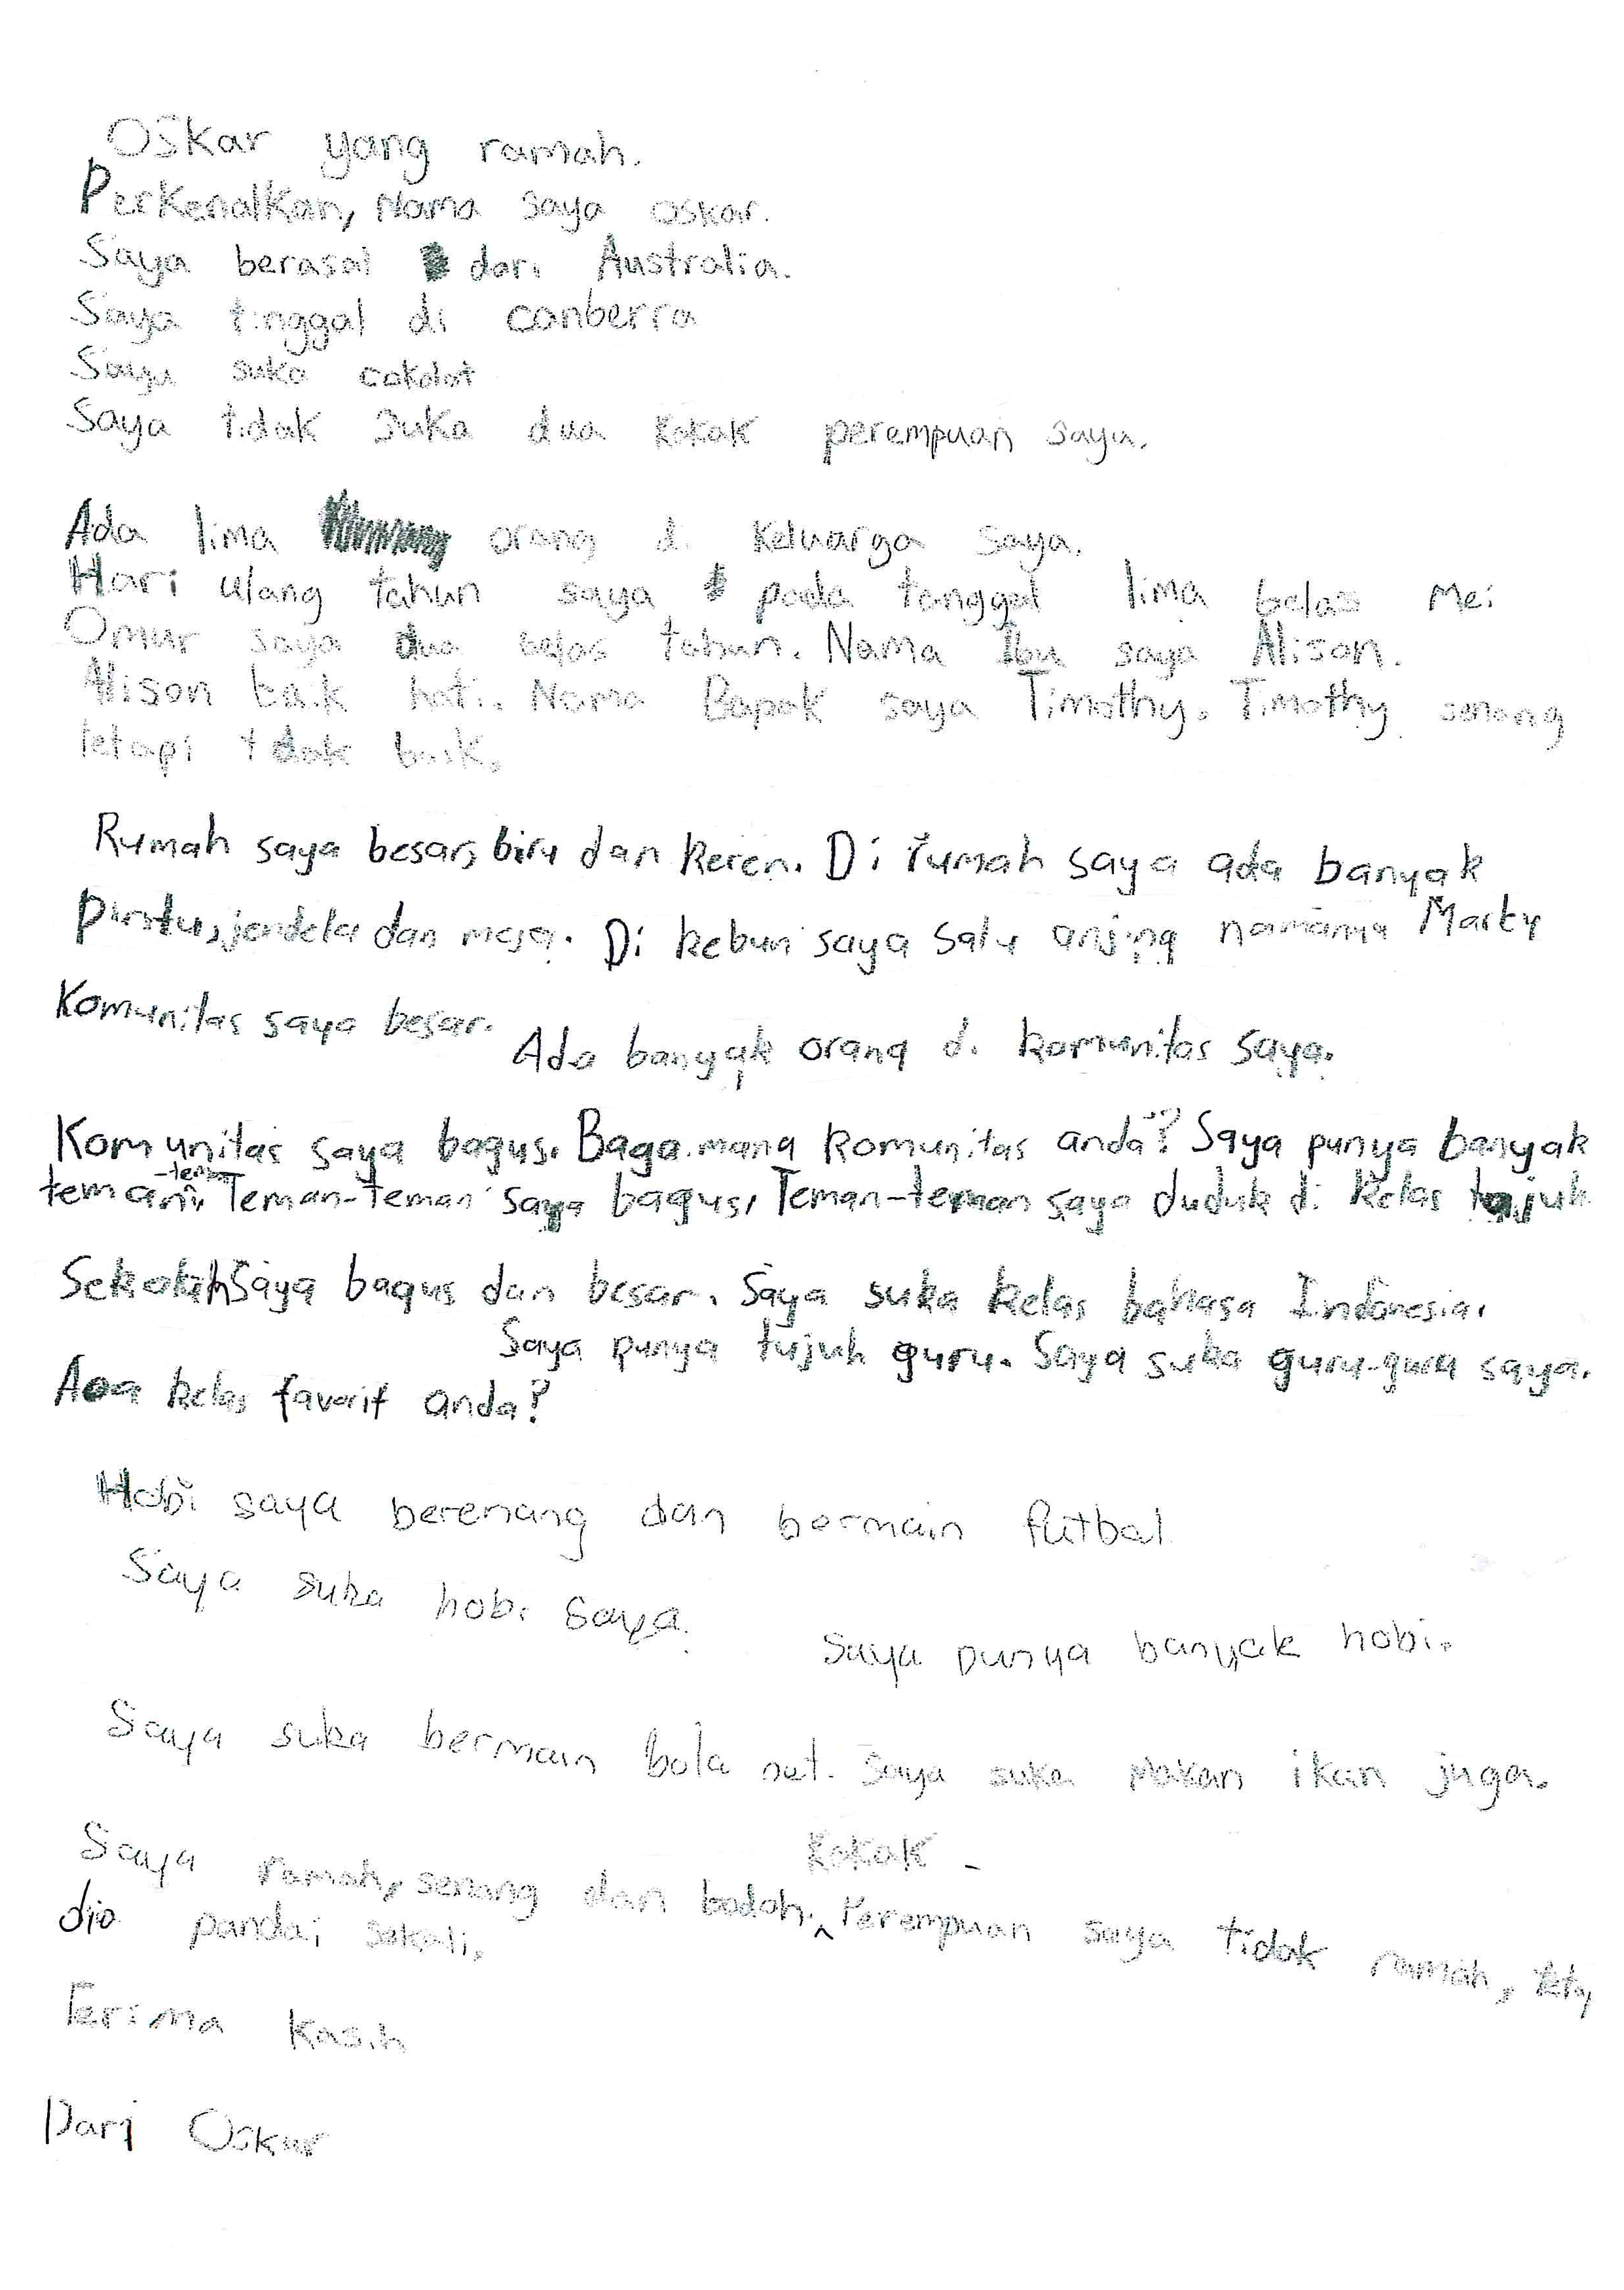 Oskar yang ramah.
Perkenalkan, Nama saya Oskar.
Saya berasal dari Australia.
Saya tinggal di canberra
Saya suka cokolat
Saya tidak suka dua kakak perempuan saya.
Ada lima orang di keluarga saya.
Hari ulang tahun saya pada tanggal lima belas Mei
Omur saya dua belas tahun. Nama Ibu saya Alison.
Alison baik hati. Nama Bapak saya Timothy. Timothy senang
tetapi tidak baik.
Rumah saya besar, biru dan keren. Di rumah saya ada banyak
pintu, jendela dan meja. Di kebun saya satu anjing namanya Marty
Komunitas saya besar.
Ada banyak orang di komunitas saya.
Komunitas saya bagus. Bagaimana komunitas anda? Saya punya banyak
teman-teman. Teman-teman saya bagus, Teman-teman saya duduk di kelas tujuh
Sekolah saya bagus dan besar. Saya suka kelas bahasa Indonesia.
Saya punya tujuh guru. Saya suka guru-guru saya.
Apa kelas favorit anda?
Hobi saya berenang dan bermain futbal
Saya suka hobi saya.
Saya punya banyak hobi.
Saya suka bermain bola net. Saya suka makan ikan juga.
Saya ramah, senang dan bodoh. Kakak Perempuan saya tidak ramah,
dia pandai sekali.
Terima kasih
Dari Oskar